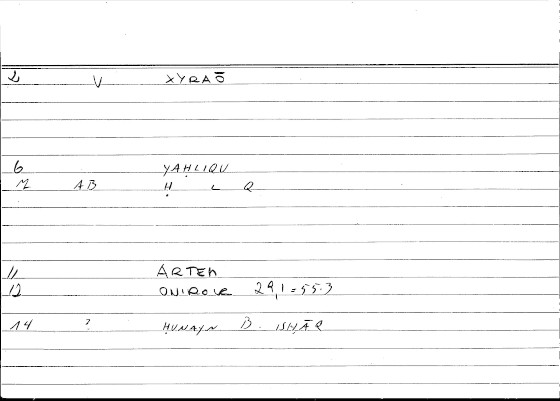 2 V XYRAŌ
6 YAḤLIQU
AB Ḥ L Q
11 ARTEM
12 ONIROCR 29,1=55.3
14 ? ḤUNAYN B. ISḤĀQ